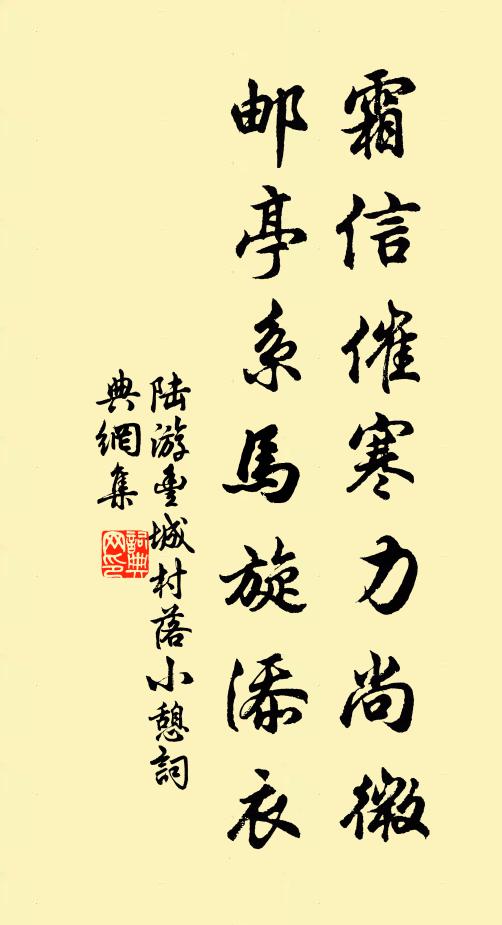 霜信催寒力尚微
邮亭系馬旋添衣
陆游豊城村落小憩詞
典網集
詞典网印